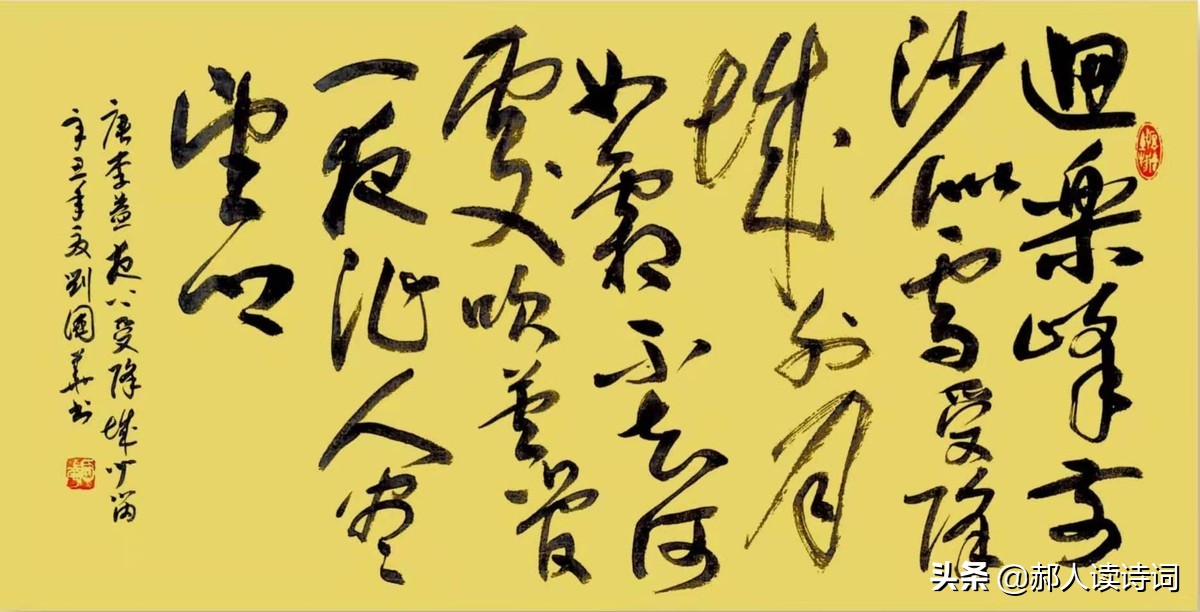 迴樂峰前
沙似雪受降
城外月
如霜不知何
處吹蘆管
一夜征人盡
望鄉
唐李益夜上受降城聞笛
辛丑年夏劉國華书
头条 @郝人读诗词